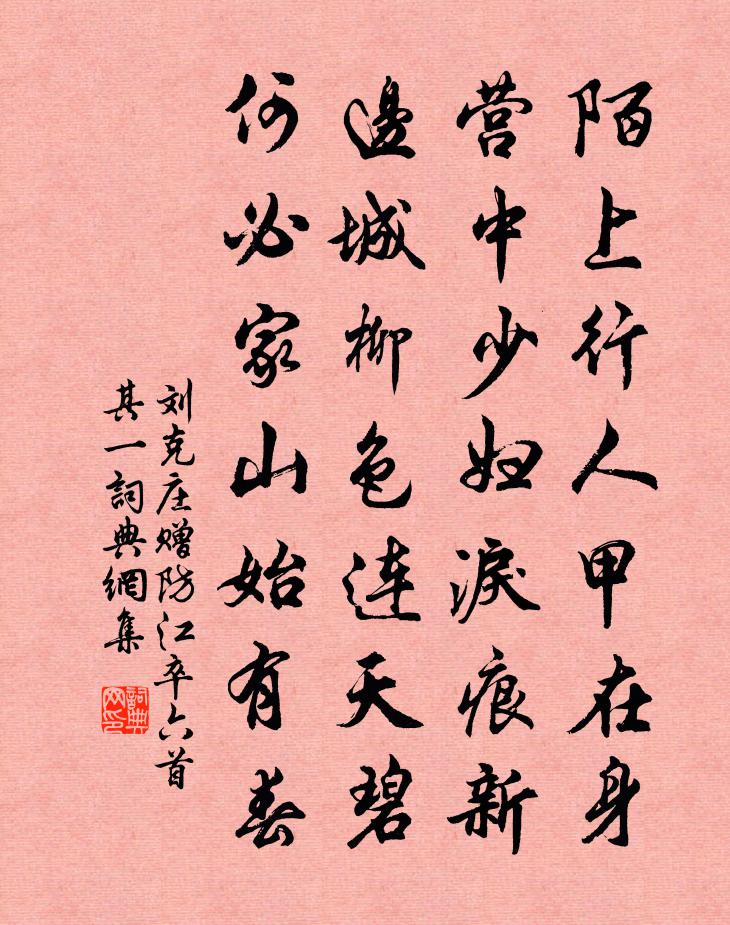 陌上行人甲在身
营中少妇淚痕新
邊城柳色连天碧
何必家山始有春
刘克庄赠防江卒六首
其一詞典網集
詞典网印